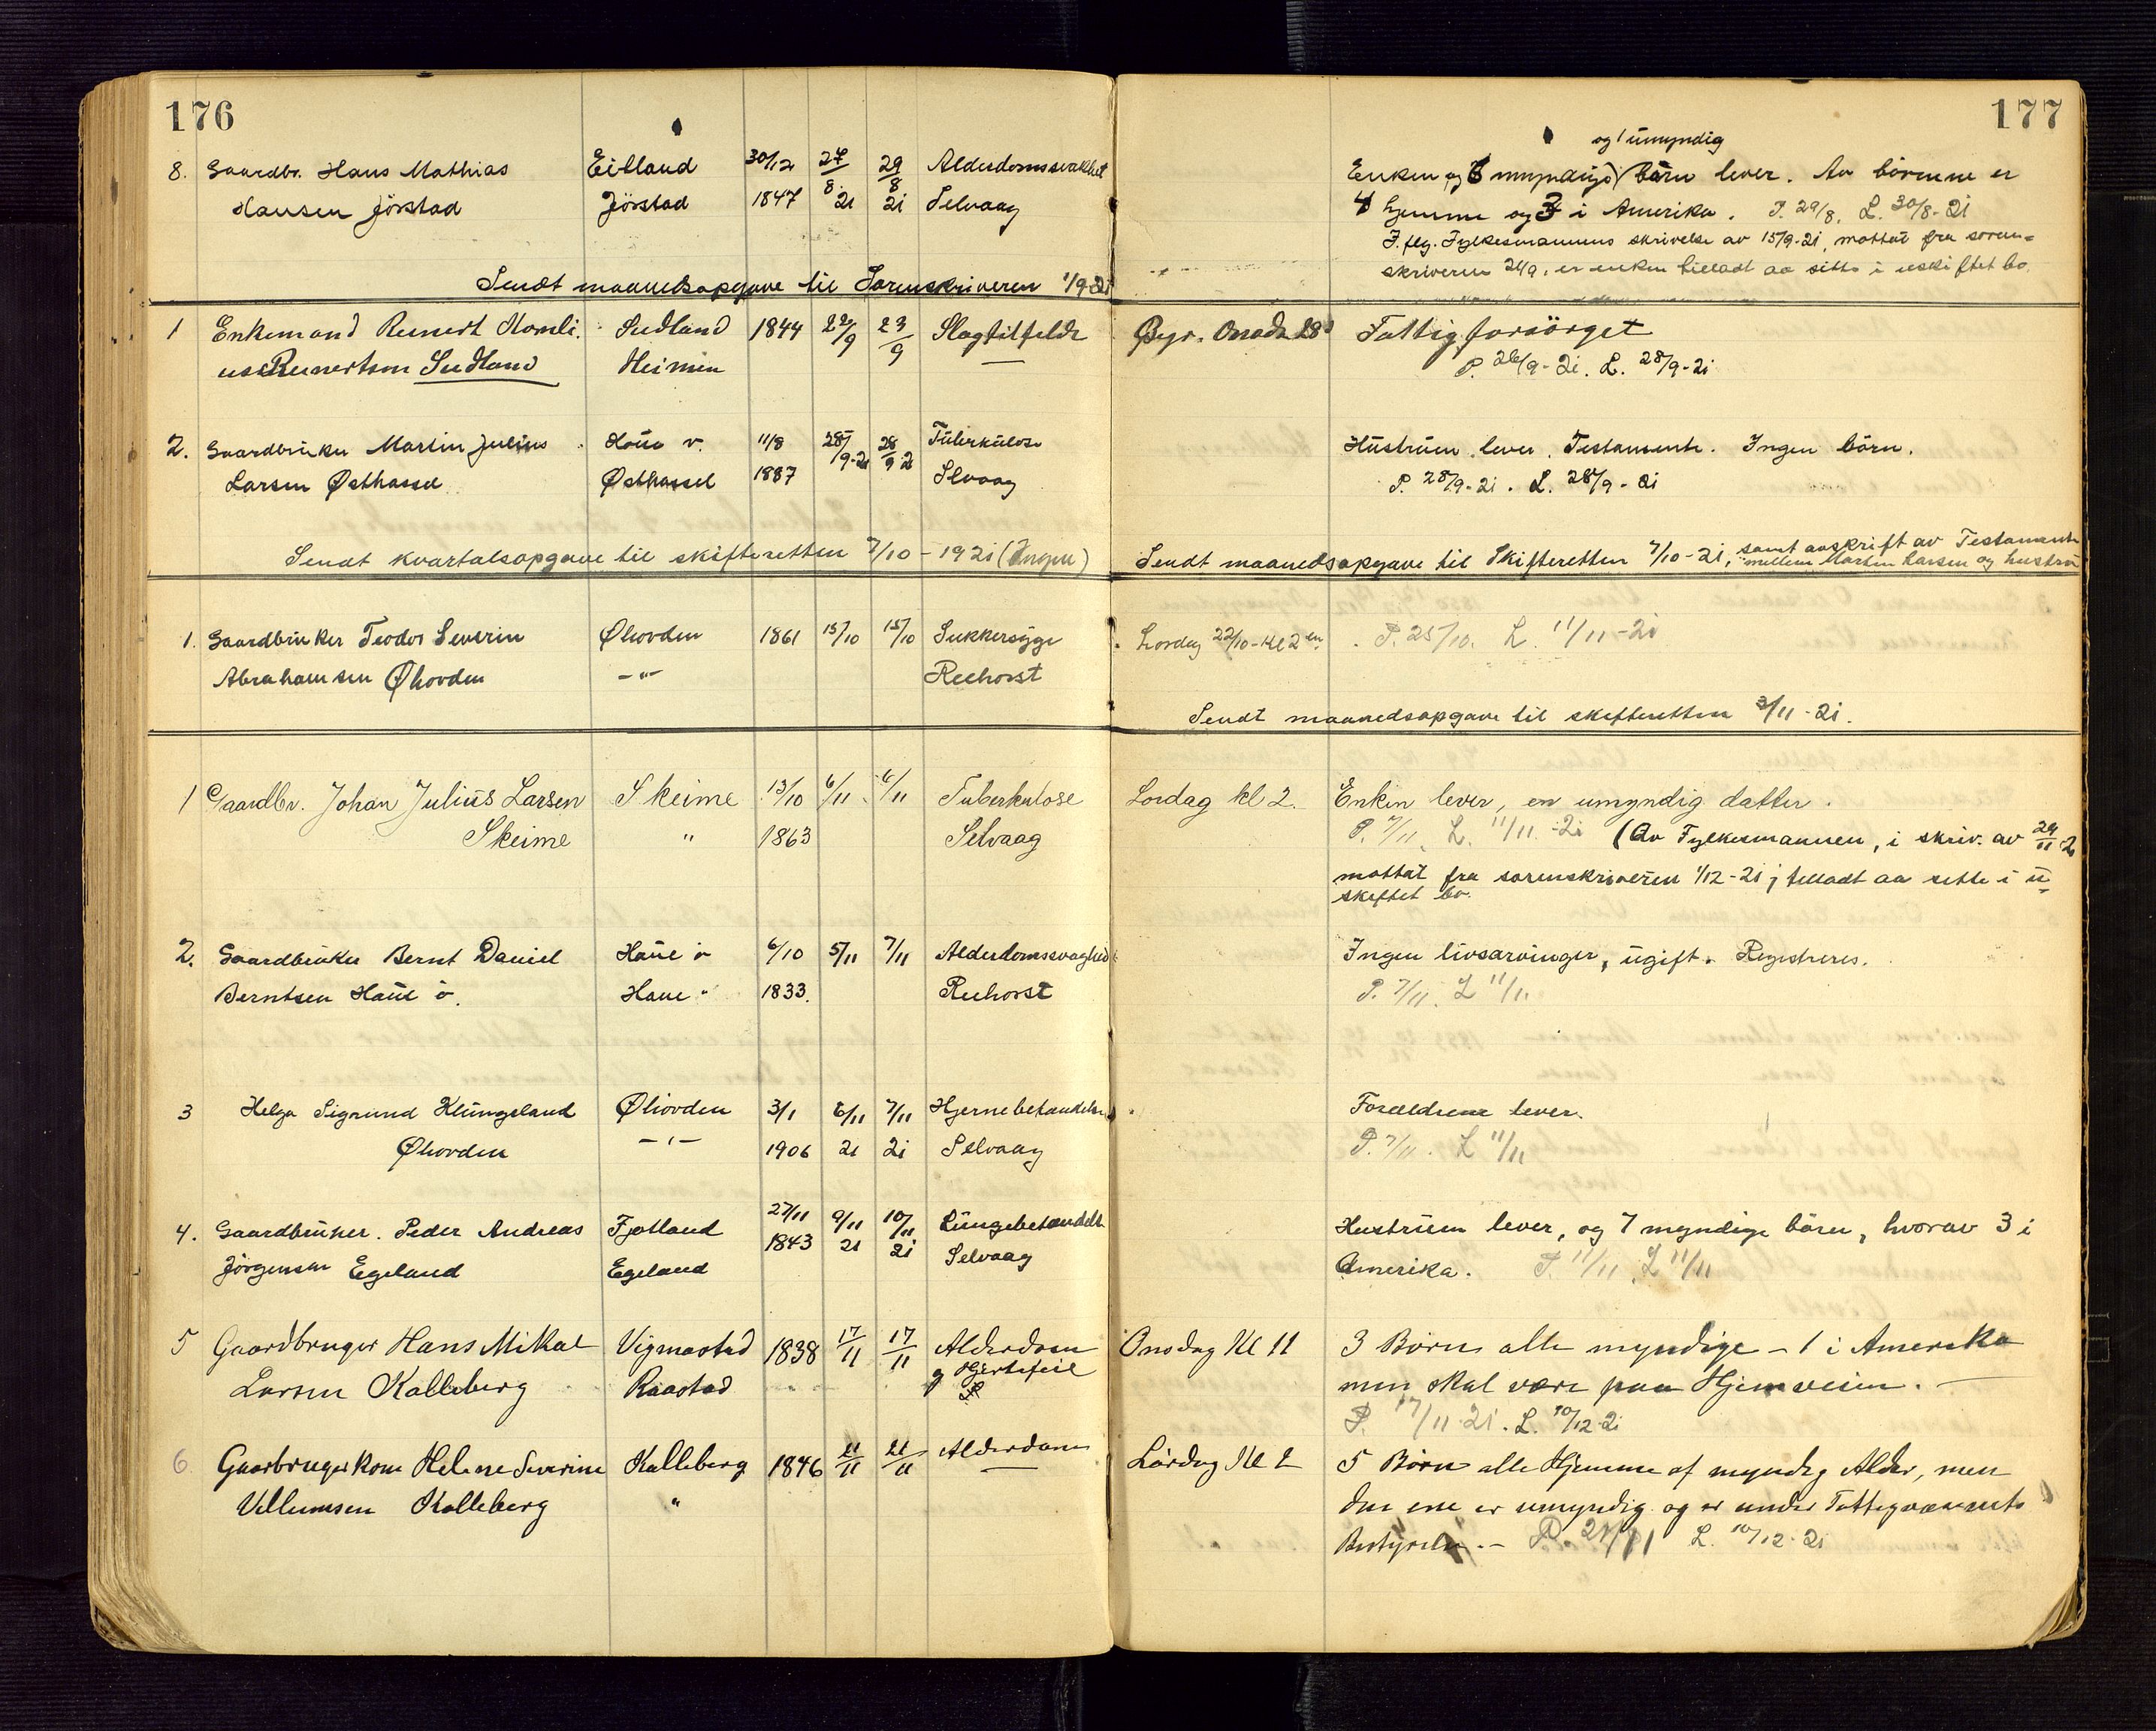 176
8. Gaardbr. Hans Mathias Eitland 30/12 27/8 29/8 Alderdomssvakhet
Hansen Jörstad Jörstad 1847 21 21 Selvaag
Sendt maanedsopgave til Sorenskriveren 1/9-21
1 Enkemand Reinert Stomli. Sudland 1844 22/9 23/9 Slagtilfelde
us Reinertsen Sudland Heimen —
2. Gaardbruker Martin Julius Haue v. 11/8 28/9-21 28/9 2 Tuberkulose
Larsen Østhassel Østhassel 1887 Selvaag
Sendt kvartalsopgave til skifteretten 7/10-1921 (Ingen)
1. Gaardbruker Teodor Severin Øhovden 1861 15/10 15/10 Sukkersyge
Abrahamsen Øhovden —"— Reehorst
1 Gaardbr. Johan Julius Larsen Skeime 13/10 6/11 6/11 Tuberkulose
Skeime " 1863 Selvaag
2. Gaardbruker Bernt Daniel Haue ö 6/10 5/11 7/11 Alderdomssvaghed
Berntsen Haue ö. Haue " 1833. Reehorst
3 Helga Sigrund Klungeland Øhovden 3/1 6/11 7/11 Hjernebetændelse
Øhovden —"— 1906 21 21 Selvaag
4. Gaardbruker. Peder Andreas Fjotland 27/11 9/11 10/11 Lungebetændelse
Jörgensen Egeland Egeland 1843 21 21 Selvaag
5 Gaardbruger Hans Mikal Vigmostad 1838 17/11 17/11 Alderdom
Larsen Kalleberg Raastad og Hjertefeil
6 Gaarbrugerkone Helene Severine Kalleberg 1846 21/11 21/11 Alderdom
Villumsen Kalleberg " —
177
og 1 umyndig
Enken og 6 myndige) börn lever. Av börnene er
4 hjemme og 3 i Amerika. P. 29/8. L. 30/8-21
I. flg. Fylkesmannens skrivelse av 15/9-21, mottat fra soren=
skriveren 24/9, er enken tilladt aa sitte i uskiftet bo.
Byr. Onsda 28 Fattigforsörget
P. 26/9-21. L. 28/9-21
Hustruen lever. Testamente. Ingen börn.
P. 28/9-21. L. 28/9-21
Sendt maanedsopgave til Skifteretten 7/10-21, samt avskrift av Testamente
mellem Martin Larsen og hustru
Lördag 22/10-Kl 2 em. P. 25/10. L. 11/11-21
Sendt maanedsopgave til skifteretten 3/11-21.
Lördag kl 2. Enken lever, en umyndig datter.
P. 7/11. L. 11/11-21 (Av Fylkesmannen, i skriv. av 29/11 2
mottat fra sorenskriveren 1/12-21, tilladt aa sitte i u-
skiftet bo.
Ingen livsarvinger, ugift. Registreres.
P. 7/11. L 11/11.
Forældrene lever.
P. 7/11. L 11/11
Hustruen lever, og 7 myndige börn, hvorav 3 i
Amerika. P. 11/11. L 11/11
Onsdag Kl 11 3 Börn alle myndige – 1 i Amerika
men skal være paa Hjemveien. —
P. 17/11-21. L. 10/12-21
Lördag Kl 2 5 Börn alle Hjemme af myndig Alder, men
den ene er umyndig og er under Fattigvæsenets
Bestyrelse. — P. 21/11 L. 10/12-21